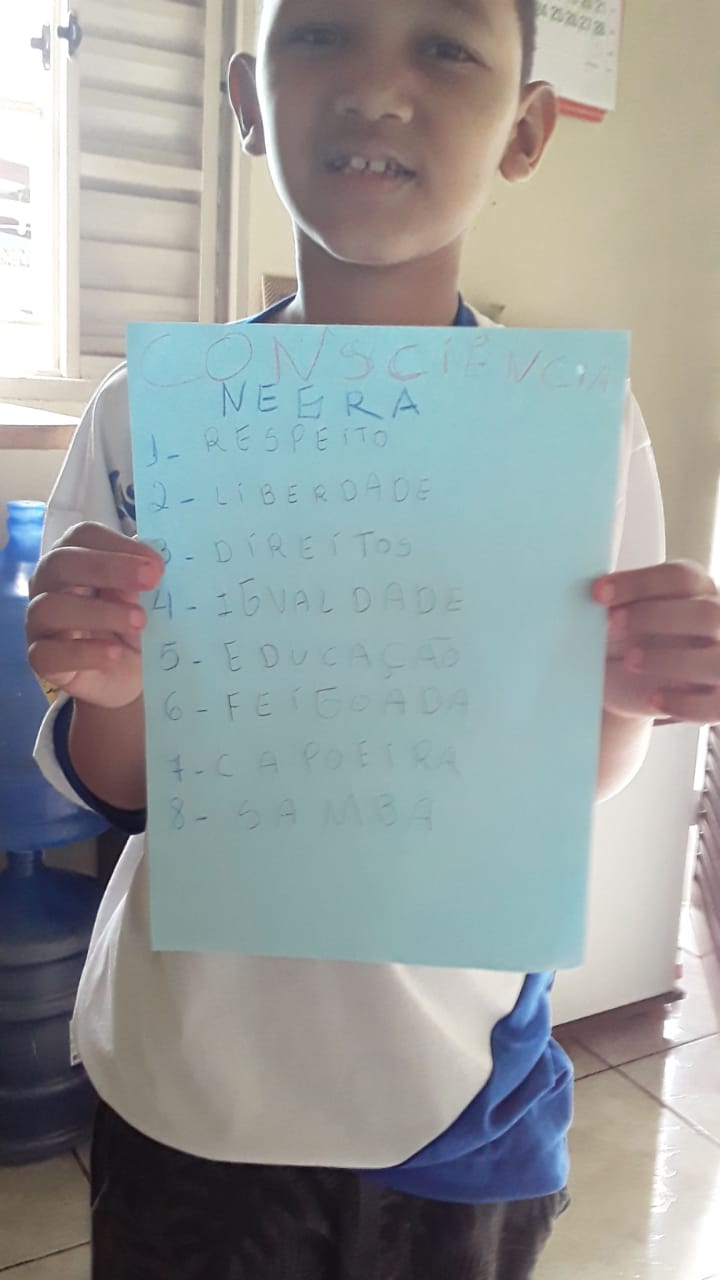 24 25 26 27 28
CONSCIÊNCIA
NEGRA
1- RESPEITO
2- LIBERDADE
3- DIREITOS
4- IGUALDADE
5- EDUCAÇÃO
6- FEIGOADA
7- CAPOEIRA
8- SAMBA